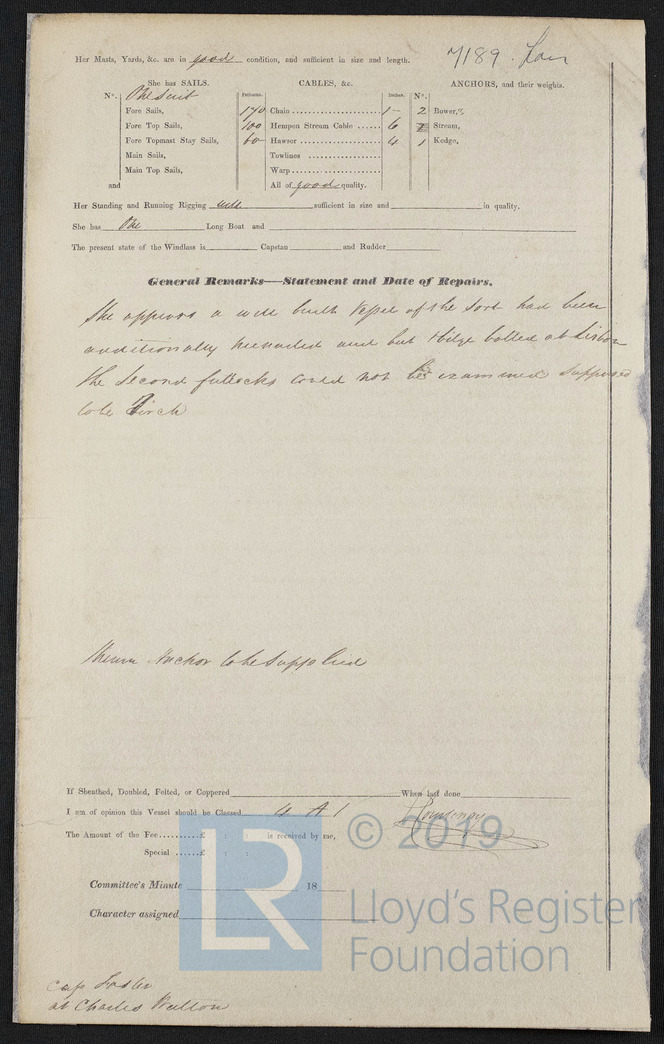 Her Masts, Yards, &c. are in good condition, and sufficient in size and length.
7189
She has SAILS.
CABLES, &c.
ANCHORS, and their weights.
N°.
One Suit
Fathoms.
Inches.
N°.
Fore Sails,
170
Chain
1
2
Bower,
Fore Top Sails,
100
Hempen Stream Cable
6
Stream,
Fore Topmast Stay Sails,
60
Hawser
4
1
Kedge,
Main Sails,
Towlines
Main Top Sails,
Warp
and
All of good quality.
Her Standing and Running Rigging well sufficient in size and in quality.
She has One Long Boat and
The present state of the Windlass is Capstan and Rudder
General Remarks—Statement and Date of Repairs.
She appears a well built Vessel of the Sort had been
additionally and but & bilge bolted at Lisbon
the Second futtocks could not be examined Supposed
to be Birch
Stream Anchor to be Supplied
If Sheathed, Doubled, Felted, or Coppered When last done
I am of opinion this Vessel should be Classed 4 A 1
The Amount of the Fee...........£ : : is received by me,
Special ......£ : :
Committee's Minute 18
Character assigned
© 2019
LR
Lloyd's Register
Foundation
at Charles Walton